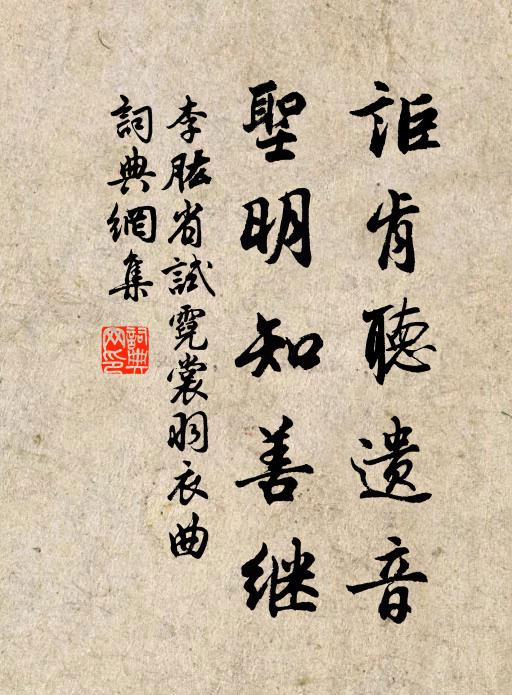 詎肯聽遺音
聖明知善继
李肱省試霓裳羽衣曲
詞典網集
詞典
网印